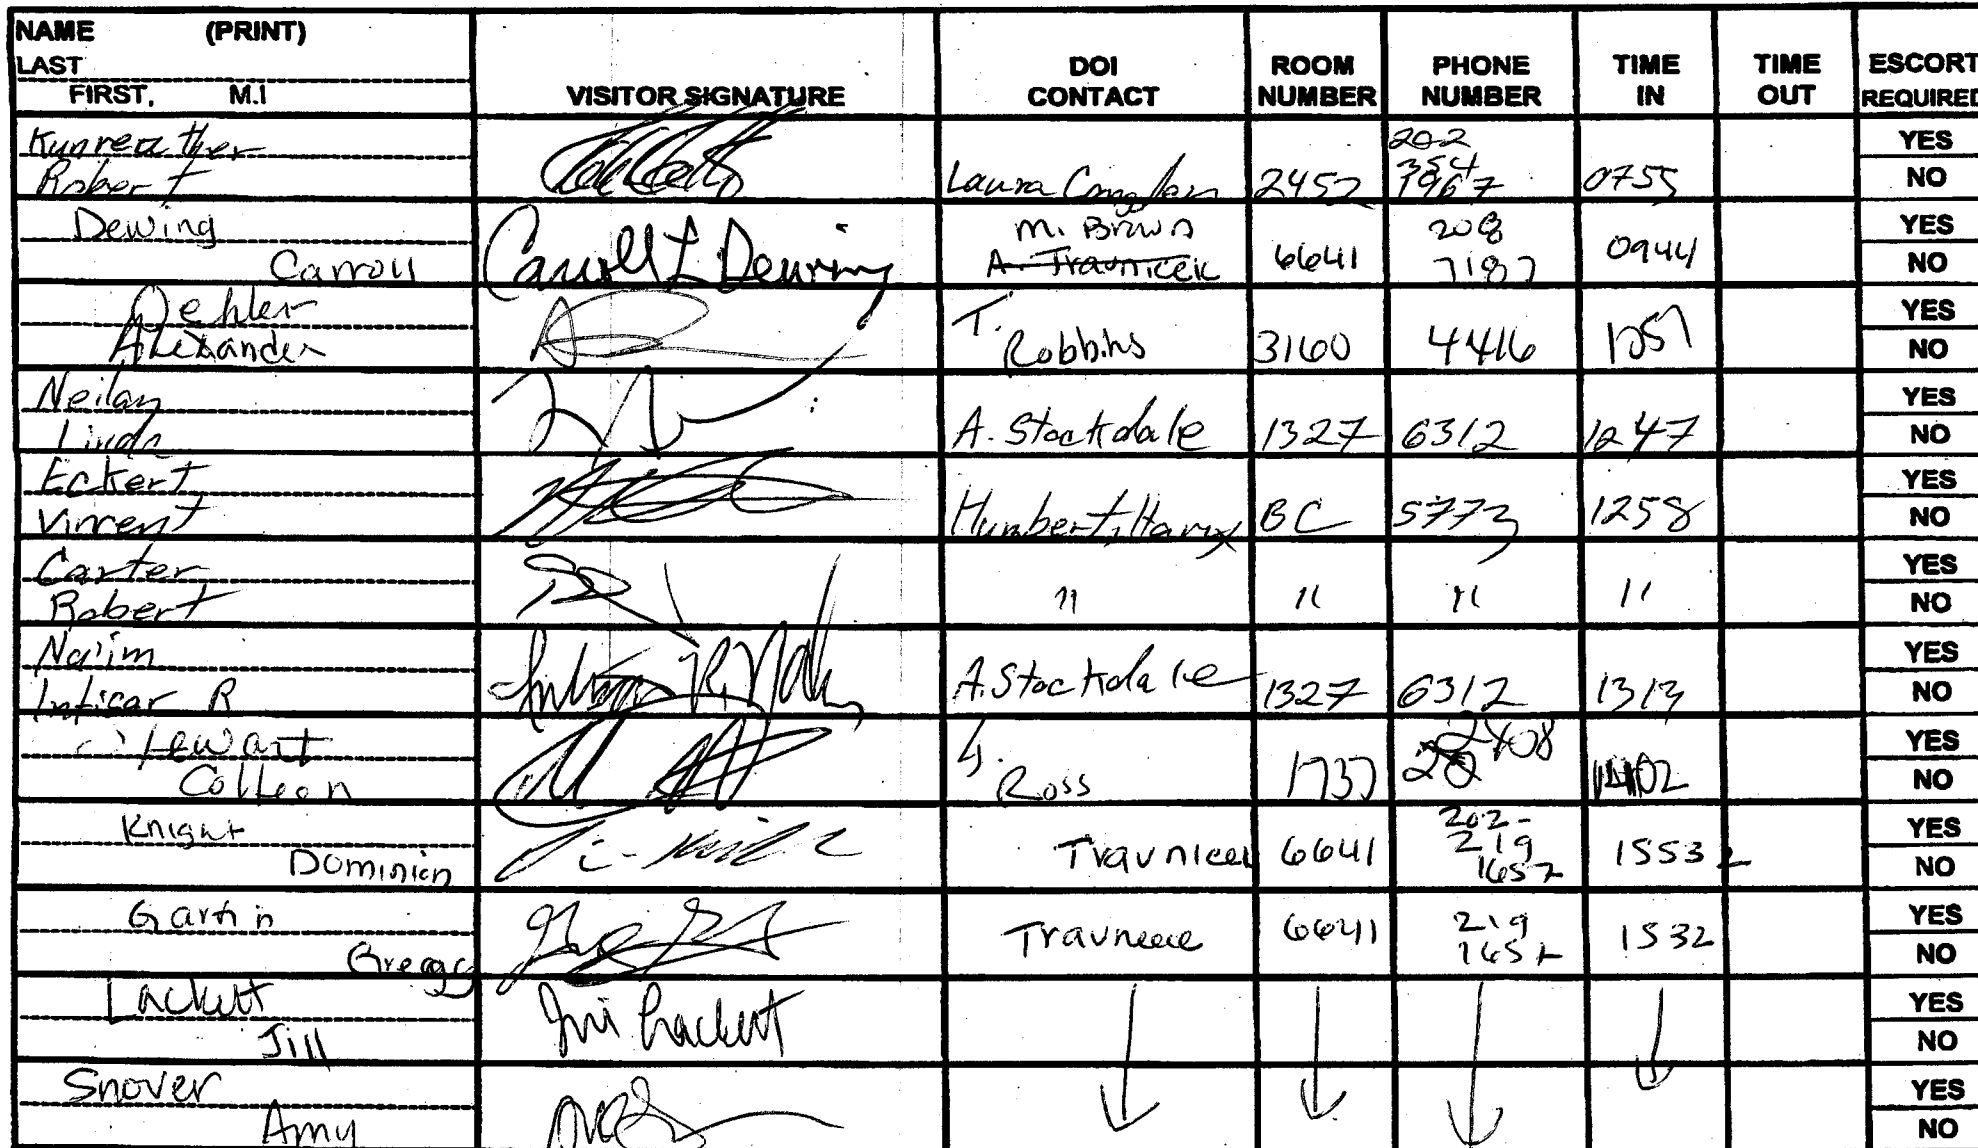 NAME (PRINT)
LAST
FIRST, M.I
VISITOR SIGNATURE
DOI CONTACT
ROOM NUMBER
PHONE NUMBER
TIME IN
TIME OUT
ESCORT REQUIRED
Kunreuther
Robert
Laura 2452 202 7967 0755
YES
NO
Dewing
Carroll
Carroll L Dewing
M. Brown
A. Travnicek
6641 208 7187 0944
YES
NO
Oehler
Alexander
T. Robbins 3160 4416
YES
NO
Neilan
Linda
A. Stockdale 1327 6312 1247
YES
NO
Eckert,
Vincent
Humbert, Harry BC 5773 1258
YES
NO
Carter,
Robert
" " " "
YES
NO
Na'im
Intisar R
A. Stockdale 1327 6312 1313
YES
NO
Stewart
Colleen
Ross 1737 2408 1402
YES
NO
Knight
Dominick
Travnicek 6641 202- 219 1652 1553
YES
NO
Garfin
Gregg
6641 219 1652 1532
YES
NO
Lackett
Jill
Jill Lackett
YES
NO
Snover
Amy
YES
NO